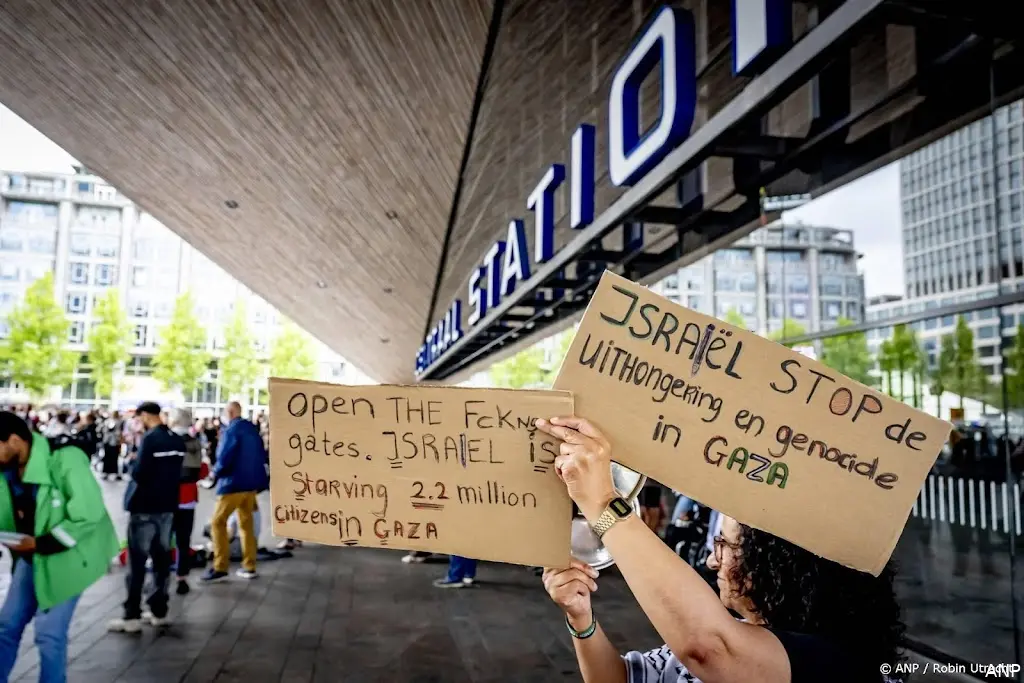 CENTRAAL STATION
OPEN THE FcKNG
gates. ISRAEL IS
Starving 2.2 million
Citizens in GAZA
ISRAËL STOP de
UITHONGERING en genocide
in GAZA
© ANP / Robin Utrecht
ANP